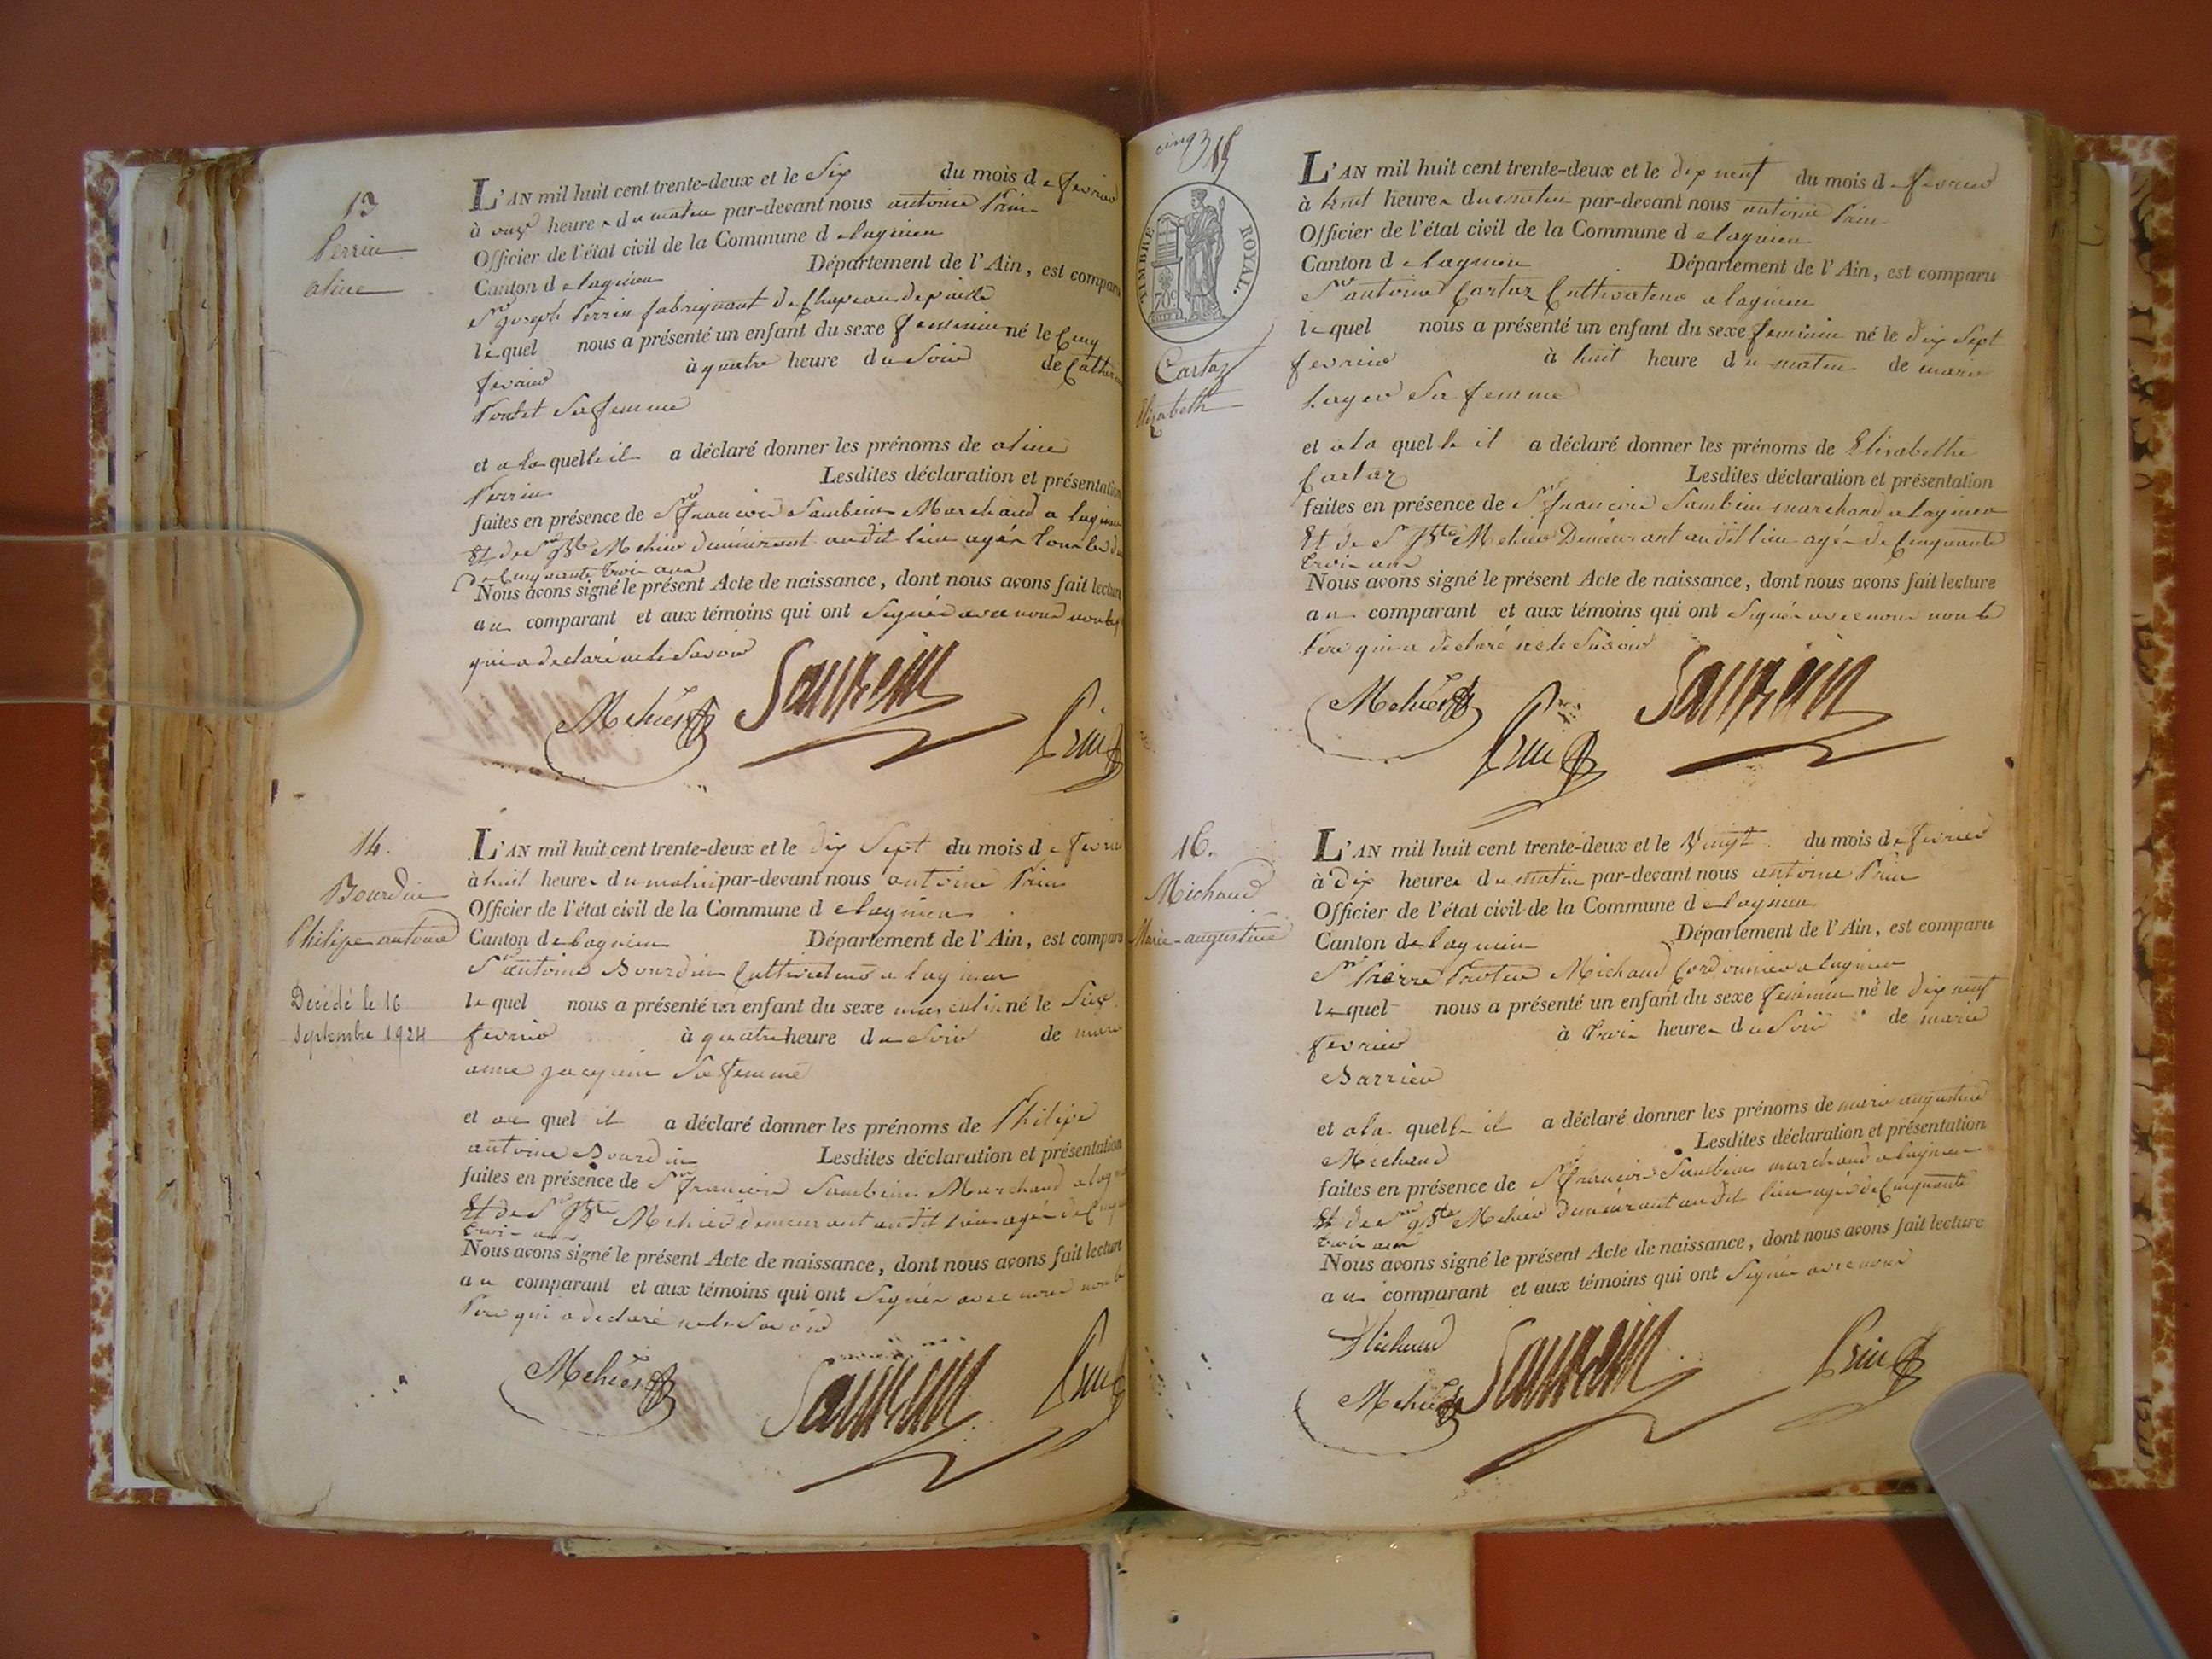 13
Perrin
aline
L'AN mil huit cent trente-deux et le Six du mois de fevrier
à onze heures du matin par-devant nous antoine Prin
Officier de l'état civil de la Commune de lagnieu
Canton de lagnieu Département de l'Ain, est comparu
Sr joseph Perrin fabriquant de Chapeau de paille
lequel nous a présenté un enfant du sexe feminin né le Cinq
fevrier à quatre heure du Soir de Catherine
sa femme
et a la quelle il a déclaré donner les prénoms de aline
Perrin Lesdites déclaration et présentation
faites en présence de Sr françois Marchand a lagnieu
Et de Sr jBte Mehier demeurant audit lieu agés tous les deux
de Cinquante trois ans
Nous avons signé le présent Acte de naissance, dont nous avons fait lecture
au comparant et aux témoins qui ont Signés avec nous non le
qui a declaré ne le Savoir
Mehier Prin
14.
Bourdin
Philipe antoine
Decédé le 16
Septembre 1924
L'AN mil huit cent trente-deux et le dix Sept du mois de fevrier
à huit heures du matin par-devant nous antoine Prin
Officier de l'état civil de la Commune de lagnieu
Canton de lagnieu Département de l'Ain, est comparu
Sr antoine Bourdin Cultivateur a lagnieu
lequel nous a présenté un enfant du sexe masculin né le
fevrier à quatre heure du Soir de marie
anne jacquin Sa femme
et au quel il a déclaré donner les prénoms de Philipe
antoine Bourdin Lesdites déclaration et présentation
faites en présence de Sr françois Marchand a lagnieu
Et de Sr jBte Mehier demeurant audit lieu agés de Cinquante
trois ans
Nous avons signé le présent Acte de naissance, dont nous avons fait lecture
au comparant et aux témoins qui ont Signés avec nous non le
Pere qui a declaré ne le Savoir
Mehier Prin
cinq
15
TIMBRE ROYAL.
70c
Cartaz
Elizabeth
L'AN mil huit cent trente-deux et le dix neuf du mois de fevrier
à huit heures du matin par-devant nous antoine Prin
Officier de l'état civil de la Commune de lagnieu
Canton de lagnieu Département de l'Ain, est comparu
Sr antoine Cartaz Cultivateur a lagnieu
lequel nous a présenté un enfant du sexe feminin né le dix Sept
fevrier à huit heure du matin de marie
Sa femme
et a la quelle il a déclaré donner les prénoms de Elisabethe
Cartaz Lesdites déclaration et présentation
faites en présence de Sr françois marchand a lagnieu
Et de Sr jBte Mehier Demeurant audit lieu agés de Cinquante
trois ans
Nous avons signé le présent Acte de naissance, dont nous avons fait lecture
au comparant et aux témoins qui ont Signés avec nous non le
Pere qui a declaré ne le Savoir
Mehier Prin
16.
Michaud
Marie-augustine
L'AN mil huit cent trente-deux et le Vingt du mois de fevrier
à dix heures du matin par-devant nous antoine Prin
Officier de l'état civil de la Commune de lagnieu
Canton de lagnieu Département de l'Ain, est comparu
Sr Pierre Michaud Cordonnier a lagnieu
lequel nous a présenté un enfant du sexe feminin né le dix neuf
fevrier à trois heures du Soir de marie
Barrier
et a la quelle il a déclaré donner les prénoms de marie augustine
Michaud Lesdites déclaration et présentation
faites en présence de Sr françois marchand a lagnieu
Et de Sr jBte Mehier demeurant audit lieu agés de Cinquante
trois ans
Nous avons signé le présent Acte de naissance, dont nous avons fait lecture
au comparant et aux témoins qui ont Signés avec nous
Michaud
Mehier Prin